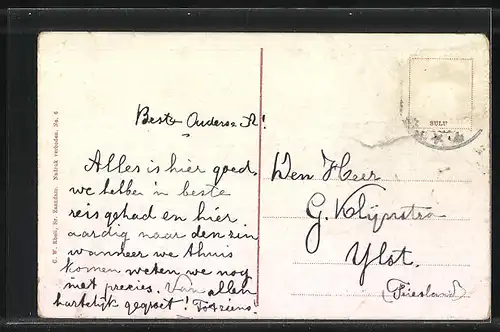 Beste Ouders en A!
Alles is hier goed,
we hebben 'n beste
reis gehad en hier
aardig naar den zin
wanneer we thuis
komen weten we nog
niet precies. Van allen
hartelijk gegroet! Tot ziens!
Den Heer
G. Klijnstra
Ylst.
(Friesland)
SULF
Nadruk verboden. No. 6